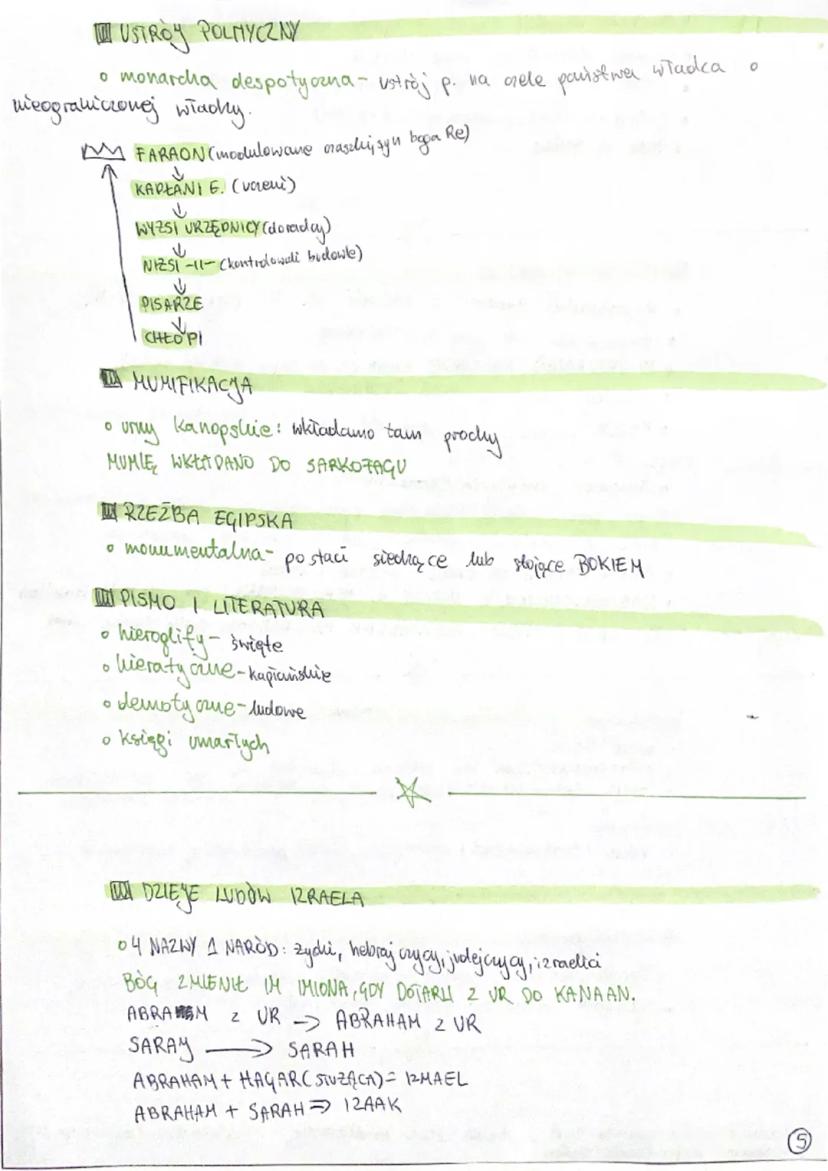 USTRÓJ POLITYCZNY
o monarcha despotyczna - ustrój p. na czele państwa władca o
nieograniczonej władzy.
FARAON (modulowane czaszki, syn boga Re)
KAPŁANI E. (uczeni)
WYŻSI URZĘDNICY (doradcy)
NIŻSI -II- (kontrolowali budowle)
PISARZE
CHŁOPI
MUMIFIKACJA
o urny kanopskie: wkładano tam prochy
MUMIĘ WKŁADANO DO SARKOFAGU
RZEŹBA EGIPSKA
o monumentalna - postaci siedzące lub stojące BOKIEM
PISMO I LITERATURA
o hieroglify - święte
o hieratyczne - kapłańskie
o demotyczne - ludowe
o księgi umarłych
DZIEJE LUDÓW IZRAELA
o 4 NAZWY 1 NARÓD: żydzi, hebrajczycy, judejczycy, izraelici
BÓG ZMIENIŁ IM IMIONA, GDY DOTARLI Z UR DO KANAAN.
ABRAM Z UR -> ABRAHAM Z UR
SARAJ -> SARAH
ABRAHAM + HAGAR (SŁUŻĄCA) = IZMAEL
ABRAHAM + SARAH => IZAAK
5